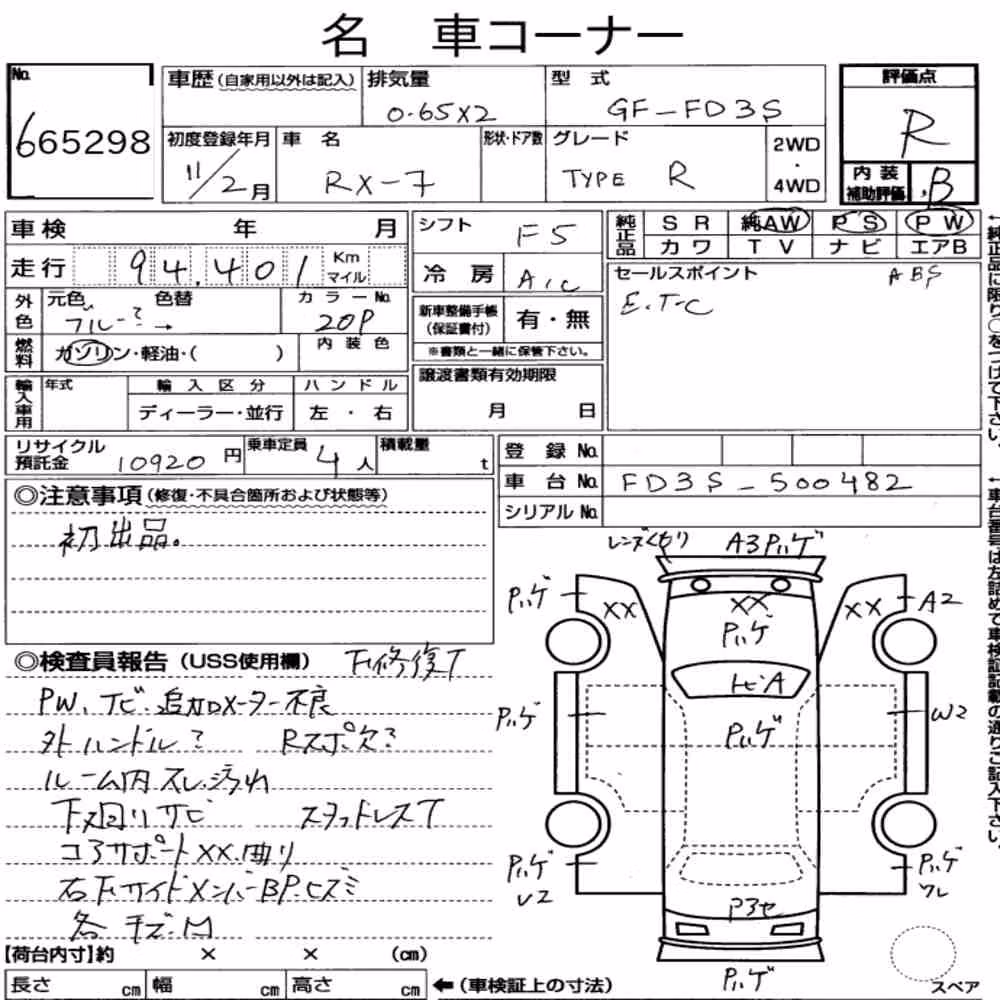 名 車コーナー
No. 665298
車歴(自家用以外は記入)
排気量 0.65X2
型式 GF-FD3S
評価点 R
初度登録年月 11/2月
車名 RX-7
形状・ドア数
グレード TYPE R
2WD・4WD
内装補助評価 B
車検 年 月
走行 94,401 Km マイル
シフト F5
冷房 A/C
純正品 SR 純AW PS PW
カワ TV ナビ エアB
セールスポイント ABS
E.T-C
外色 元色 ブルー? → 色替
カラーNo. 20P
燃料 ガソリン・軽油・( )
内装色
新車整備手帳(保証書付) 有・無
※書類と一緒に保管下さい。
輸入車用 年式 輸入区分 ハンドル
ディーラー・並行 左・右
譲渡書類有効期限
月 日
←純正品に限り○をつけて下さい。
リサイクル預託金 10920円
乗車定員 4人
積載量 t
登録No.
車台No. FD3S-500482
シリアルNo.
←車台番号は左詰めで車検証記載の通りご記入下さい。
◎注意事項(修復・不具合箇所および状態等)
初出品。
◎検査員報告(USS使用欄) 下修復T
PW、ナビ・追加メーター不良
外ハンドル? Rスポ欠?
ルーム内スレ・汚れ
下回りサビ スタッドレスT
コアサポートXX.曲り
右F.サイドメンバーBP.ヒズミ
各キズ.凹
レンズくもり A3Pハゲ
Pハゲ XX XX XX A2
Pハゲ
トビA
Pハゲ Pハゲ W2
Pハゲ U2 Pハゲ ワレ
Pハゲ
【荷台内寸】約 × × (cm)
長さ cm 幅 cm 高さ cm
←(車検証上の寸法)
スペア